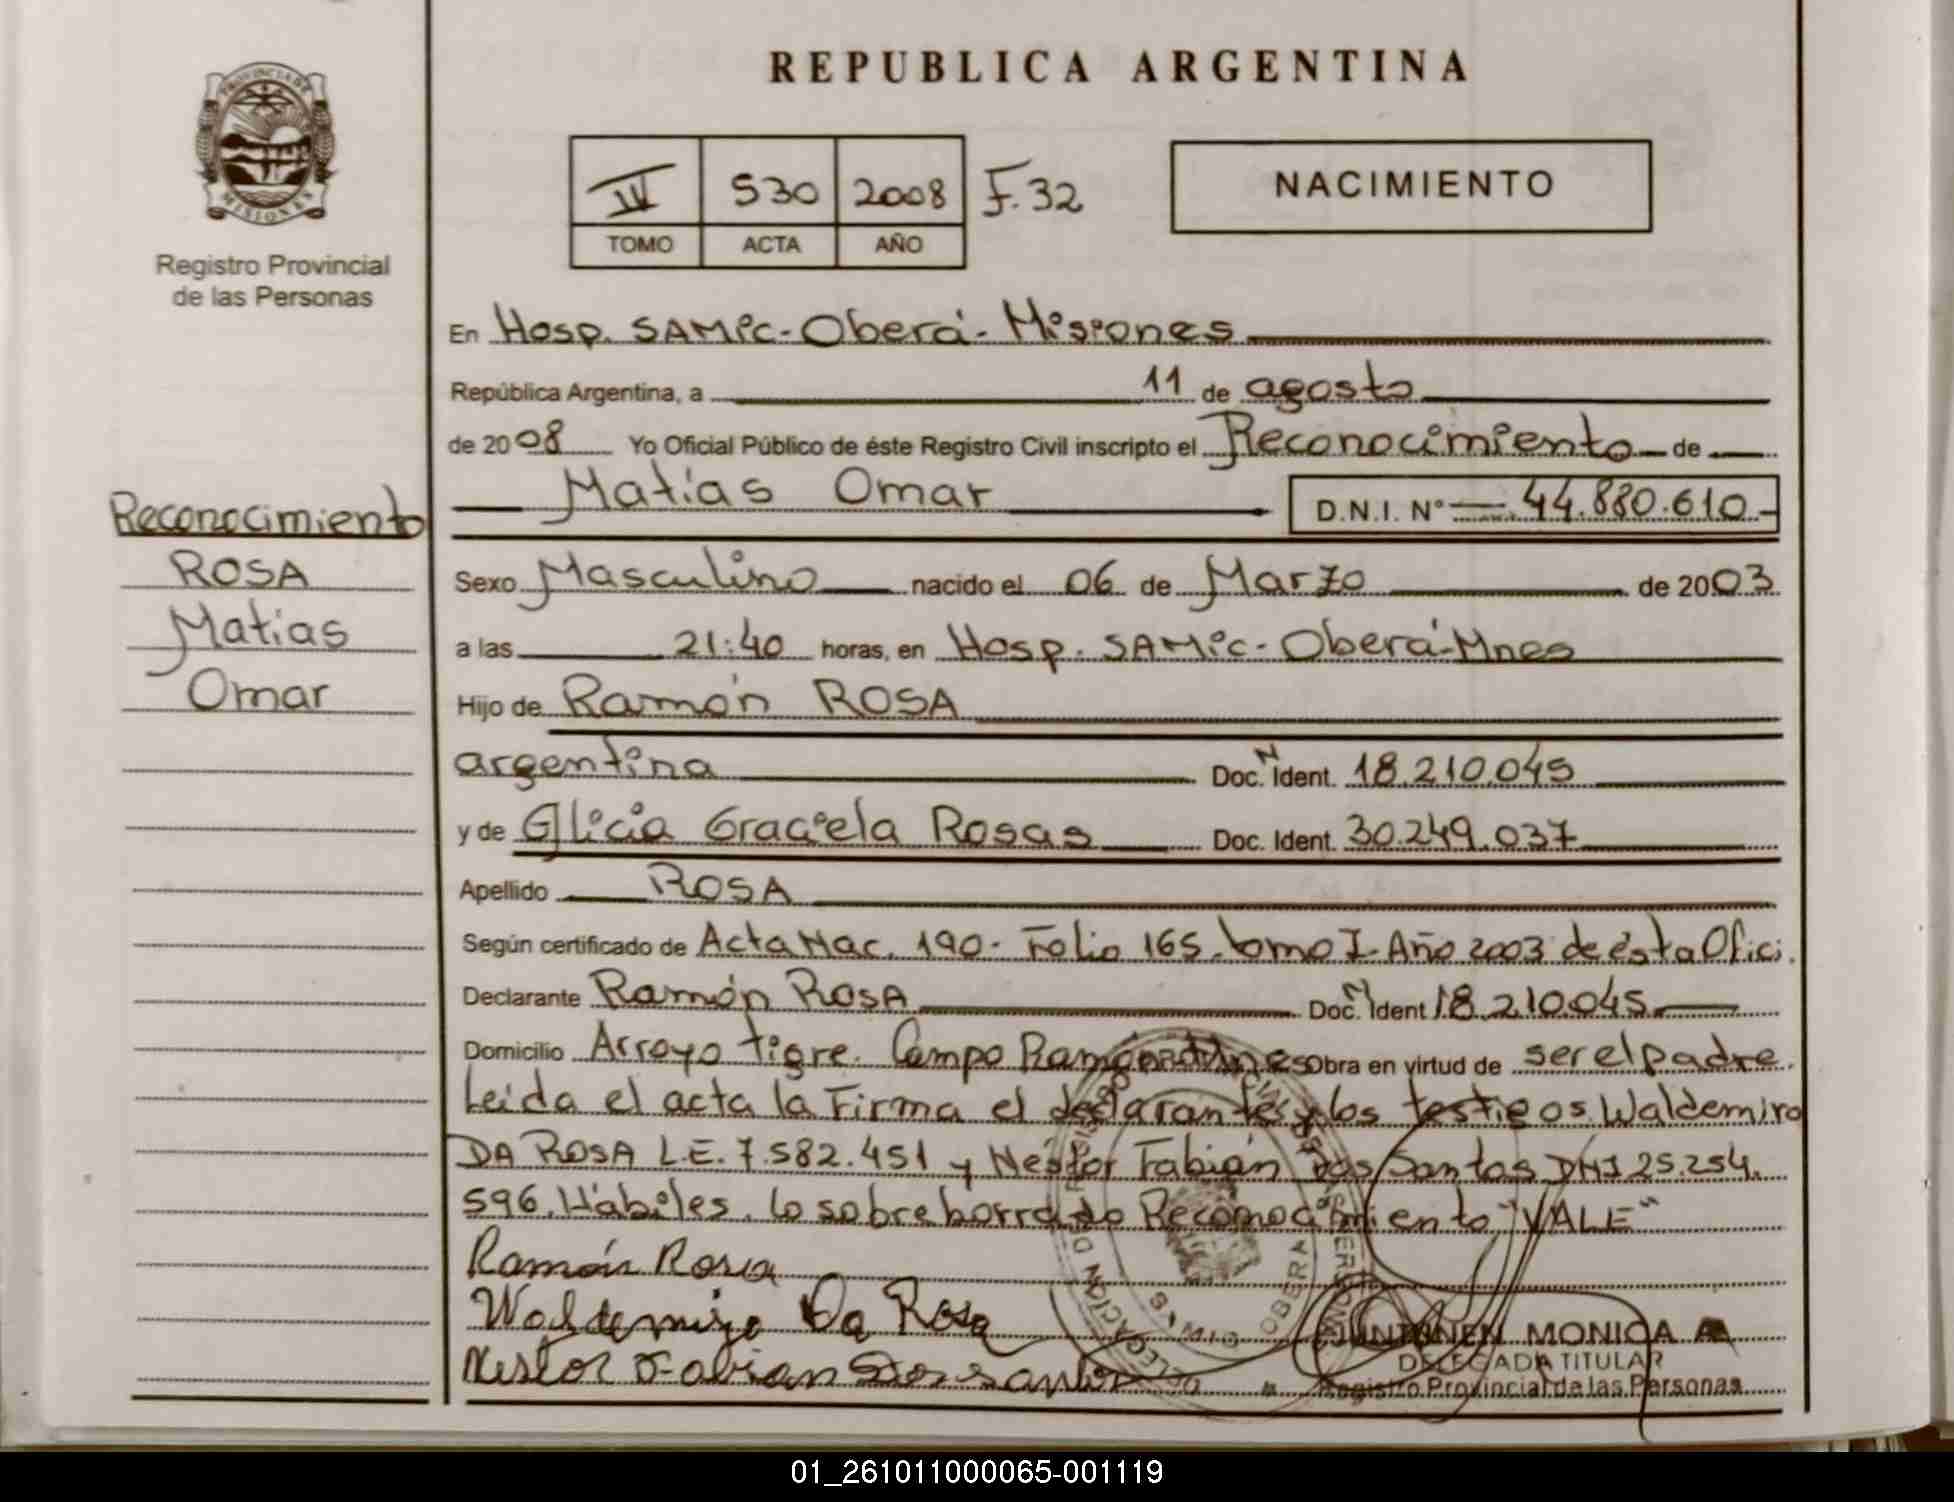 REPUBLICA ARGENTINA
PROVINCIA DE
MISIONES
Registro Provincial
de las Personas
IV 530 2008 F. 32
TOMO ACTA AÑO
NACIMIENTO
En Hosp. SAMic - Oberá - Misiones
República Argentina, a 11 de agosto
de 2008 Yo Oficial Público de éste Registro Civil inscripto el Reconocimiento de
Matías Omar D.N.I. N° 44.880.610
Reconocimiento
ROSA
Matias
Omar
Sexo Masculino nacido el 06 de Marzo de 2003
a las 21:40 horas, en Hosp. SAMic - Oberá - Mnes
Hijo de Ramón ROSA
argentina Doc. N Ident. 18.210.045
y de Alicia Graciela Rosas Doc. Ident. 30.249.037
Apellido ROSA
Según certificado de Acta Nac. 190 - Folio 165. tomo I - Año 2003 de ésta Ofici.
Declarante Ramón ROSA Doc. N Ident 18.210.045
Domicilio Arroyo tigre. Campo Ramón Mnes Obra en virtud de ser el padre.
Leída el acta la Firma el declarante y los testigos Waldemiro
DA ROSA L.E. 7.582.451 y Néstor Fabián Dos Santos DNI 25.254.
596. Hábiles. lo sobreborrado Reconocimiento "VALE"
Ramón Rosa
Waldemiro Da Rosa
Nestor Fabian Dos santos
OBERA
MONICA A
DELEGADA TITULAR
Registro Provincial de las Personas
01_261011000065-001119